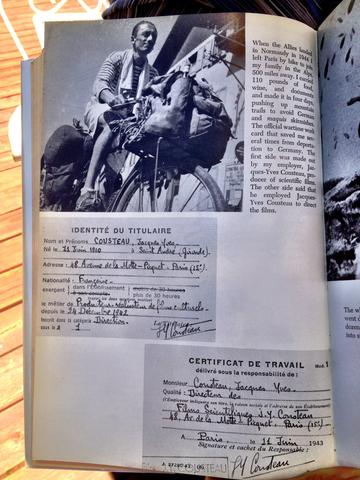 When the Allies landed
in Normandy in 1944 I
left Paris by bike to join
my family in the Alps,
500 miles away. I carried
110 pounds of food,
wine, and documents
and made it in four days,
pushing up mountain
trails to avoid German
and maquis skirmishes.
The official wartime work
card that saved me sev-
eral times from deporta-
tion to Germany. The
first side was made out
by my employer, Jac-
ques-Yves Cousteau, pro-
ducer of scientific films.
The other side said that
he employed Jacques-
Yves Cousteau to direct
the films.
IDENTITÉ DU TITULAIRE
Nom et Prénoms COUSTEAU, Jacques Yves
Né le 11 Juin 1910 à Saint André (Gironde)
Adresse : 48, Avenue de la Motte-Picquet - Paris (15e)
Nationalité : Française
exerçant dans l'établissement moins de 30 heures
à son compte plus de 30 heures
le métier de Producteur-réalisateur de films culturels
depuis le 24 Décembre 1942
Inscrit dans la catégorie Direction
sous le 1
JY Cousteau
CERTIFICAT DE TRAVAIL
délivré sous la responsabilité de :
Monsieur Cousteau, Jacques Yves
Qualité : Directeur des
Films Scientifiques J.Y. Cousteau
48, Av. de la Motte-Picquet - Paris (15e)
A Paris le 11 Juin 1943
Signature et cachet du Responsable :
JY Cousteau
The w
down
into